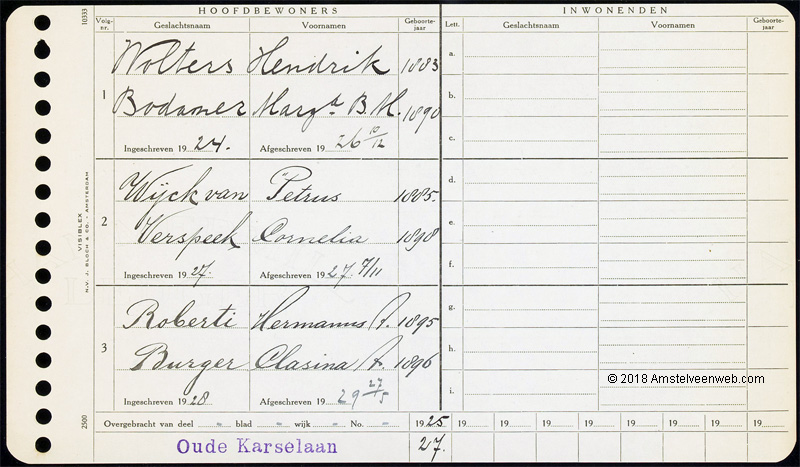 HOOFDBEWONERS
INWONENDEN
10333
Volg-nr.
Geslachtsnaam
Voornamen
Geboorte-jaar
Lett.
Geslachtsnaam
Voornamen
Geboorte-jaar
1
Wolters Hendrik 1883
Bodamer Marg.a B. M. 1890
Ingeschreven 1924. Afgeschreven 1926 10/12
a.
b.
c.
VISIBLEX
N.V. J. BLOCH & CO. - AMSTERDAM
2
Wijck van Petrus 1885.
Verspeek Cornelia 1898
Ingeschreven 1927. Afgeschreven 1927. 7/11
d.
e.
f.
3
Roberti Hermanus A. 1895
Burger Clasina A. 1896
Ingeschreven 1928 Afgeschreven 1929 27/5
g.
h.
i.
© 2018 Amstelveenweb.com
2500
Overgebracht van deel " blad " wijk " No. " 1925. 19 19 19 19 19 19 19 19
Oude Karselaan 27.